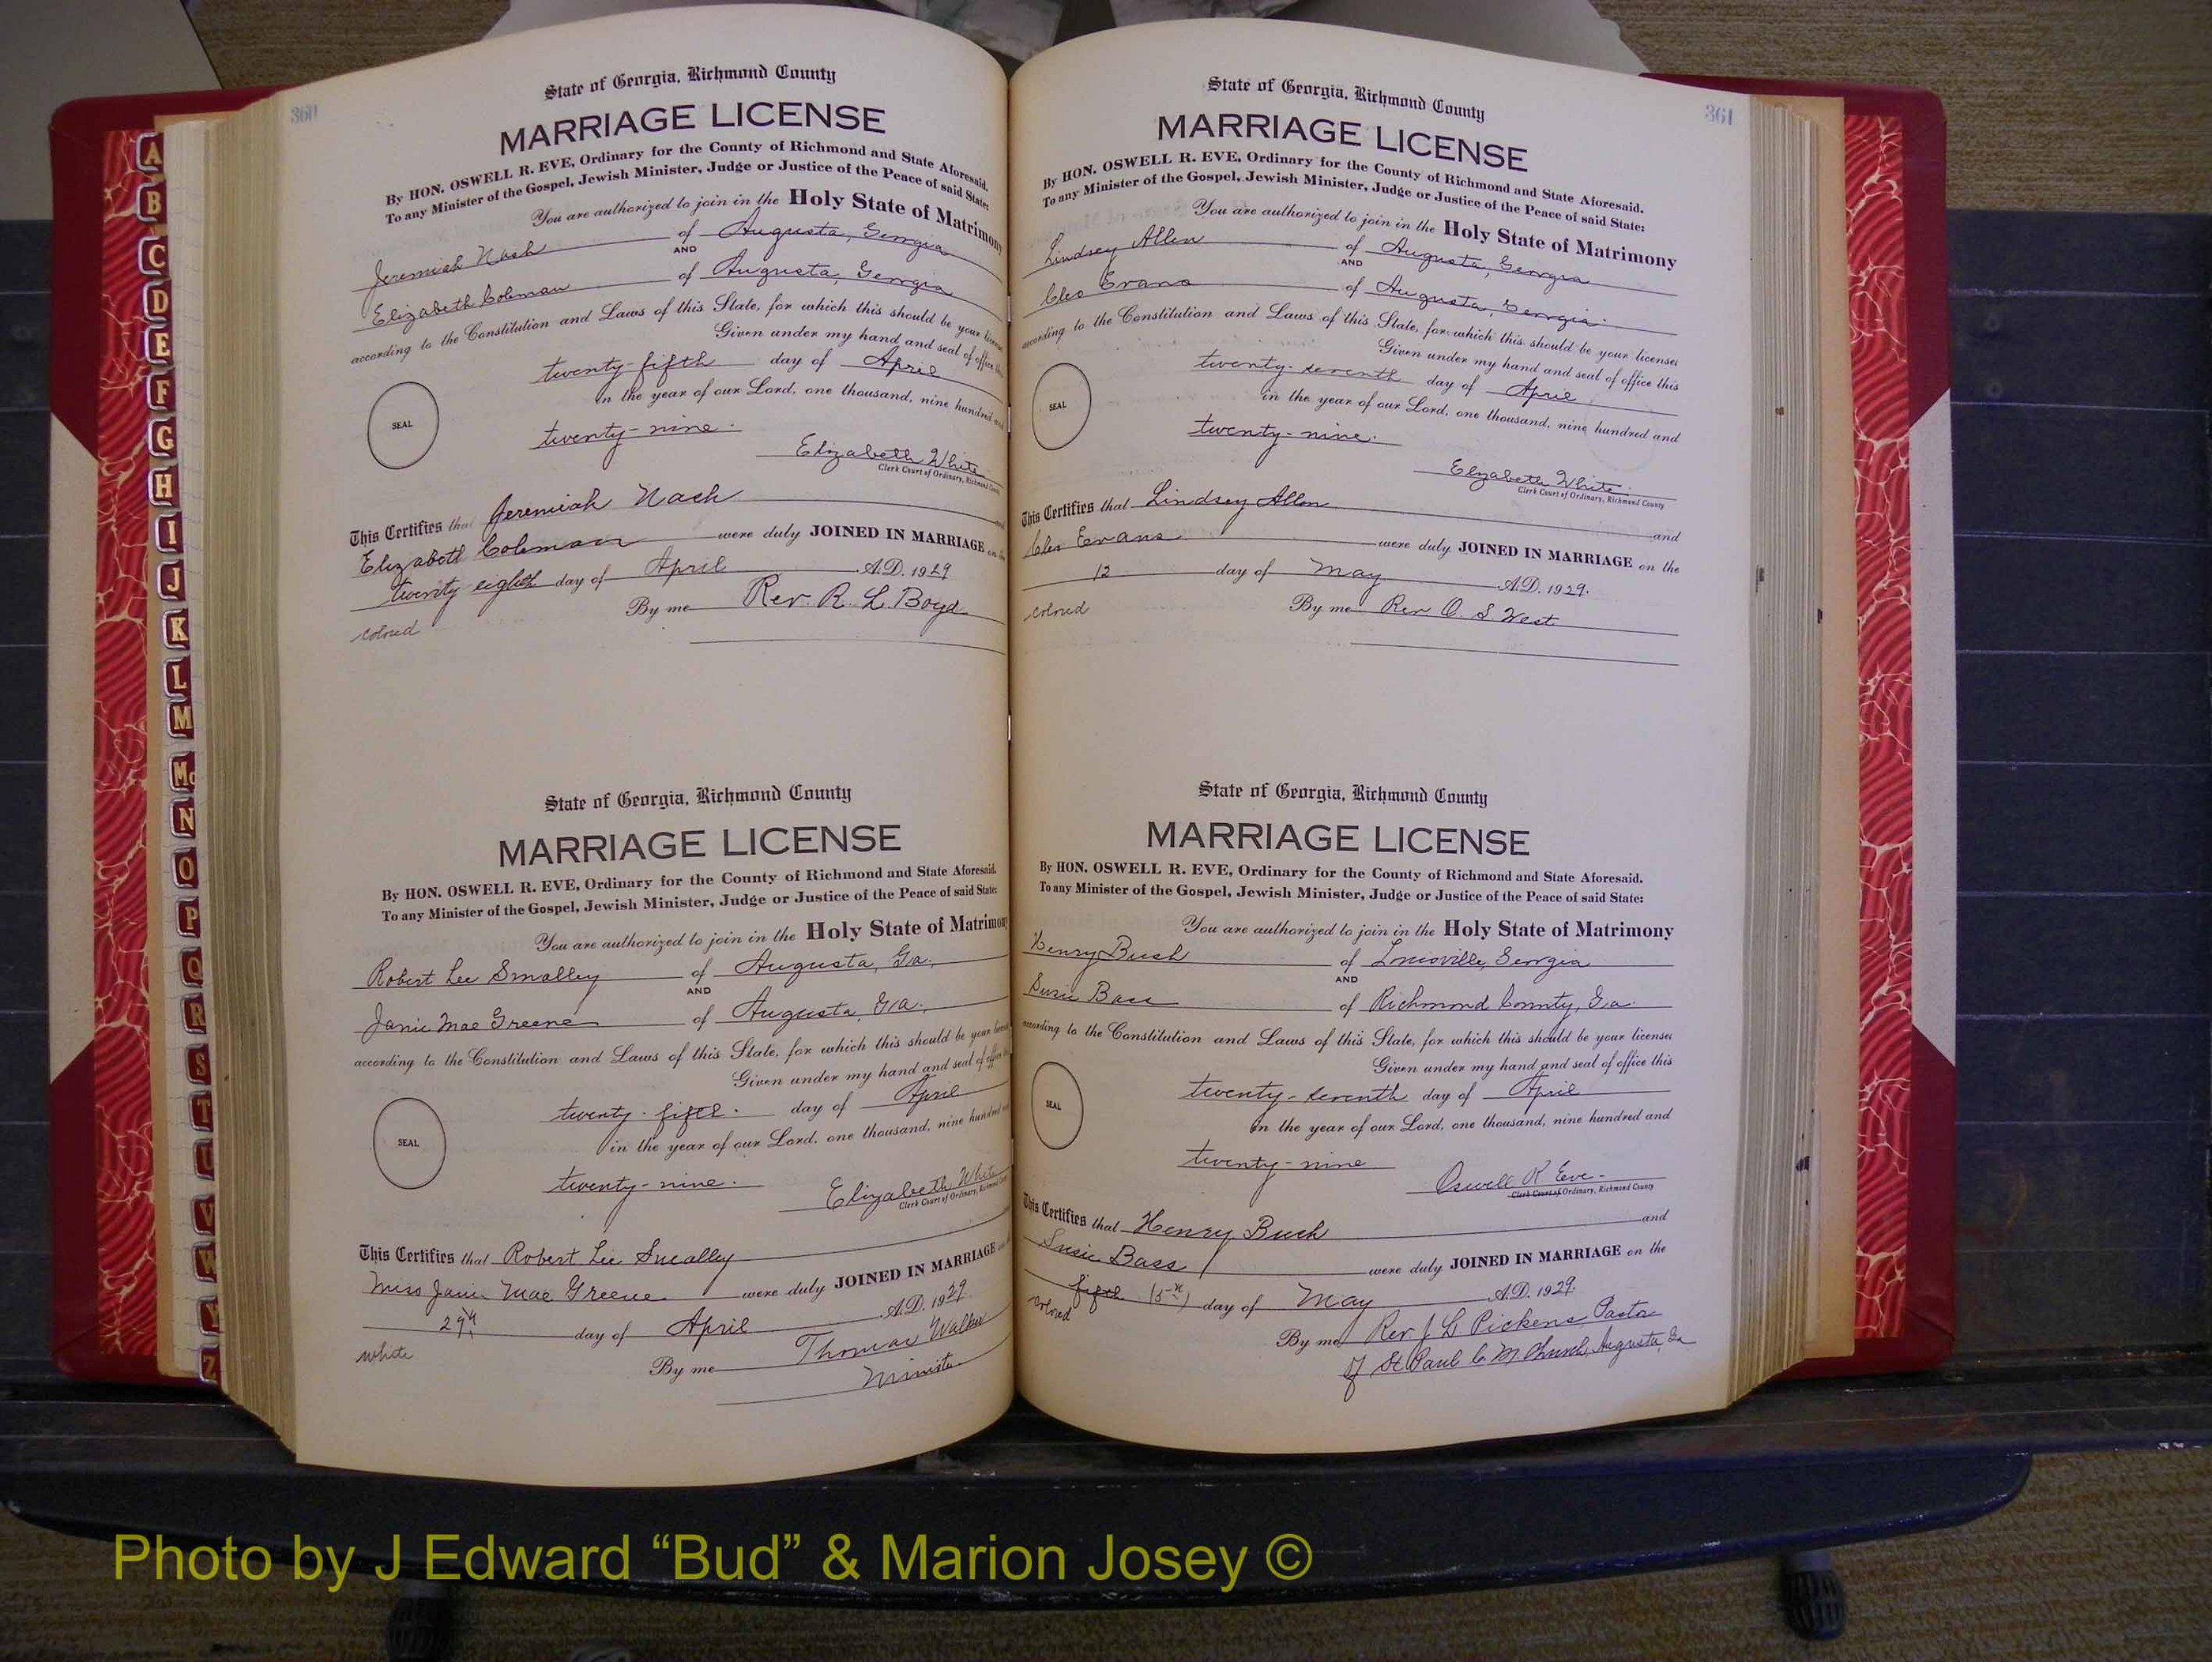 360
State of Georgia, Richmond County
MARRIAGE LICENSE
By HON. OSWELL R. EVE, Ordinary for the County of Richmond and State Aforesaid.
To any Minister of the Gospel, Jewish Minister, Judge or Justice of the Peace of said State:
You are authorized to join in the Holy State of Matrimony
Jeremiah Nash of Augusta, Georgia
AND
Elizabeth Coleman of Augusta, Georgia
according to the Constitution and Laws of this State, for which this should be your license
Given under my hand and seal of office this
twenty-fifth day of April
in the year of our Lord, one thousand, nine hundred and
SEAL
twenty-nine.
Elizabeth White
Clerk Court of Ordinary, Richmond County
This Certifies that Jeremiah Nash and
Elizabeth Coleman were duly JOINED IN MARRIAGE on the
twenty eighth day of April A.D. 1929
By me Rev. R. L. Boyd
colored
State of Georgia, Richmond County
MARRIAGE LICENSE
By HON. OSWELL R. EVE, Ordinary for the County of Richmond and State Aforesaid.
To any Minister of the Gospel, Jewish Minister, Judge or Justice of the Peace of said State:
You are authorized to join in the Holy State of Matrimony
Robert Lee Smalley of Augusta, Ga.
AND
Janie Mae Greene of Augusta, Ga.
according to the Constitution and Laws of this State, for which this should be your license
Given under my hand and seal of office
twenty-fifth. day of April
in the year of our Lord, one thousand, nine hundred
SEAL
twenty-nine.
Elizabeth White
Clerk Court of Ordinary, Richmond County
This Certifies that Robert Lee Smalley
Miss Janie Mae Greene were duly JOINED IN MARRIAGE
29th day of April A.D. 1929
white
By me Thomas Walker
Minister
361
State of Georgia, Richmond County
MARRIAGE LICENSE
By HON. OSWELL R. EVE, Ordinary for the County of Richmond and State Aforesaid.
To any Minister of the Gospel, Jewish Minister, Judge or Justice of the Peace of said State:
You are authorized to join in the Holy State of Matrimony
Lindsey Allen of Augusta, Georgia
AND
Cleo Evans of Augusta, Georgia
according to the Constitution and Laws of this State, for which this should be your licenses
Given under my hand and seal of office this
twenty-seventh day of April
in the year of our Lord, one thousand, nine hundred and
SEAL
twenty-nine.
Elizabeth White
Clerk Court of Ordinary, Richmond County
This Certifies that Lindsey Allen and
Cleo Evans were duly JOINED IN MARRIAGE on the
12 day of May A.D. 1929.
colored
By me Rev O. S. West
State of Georgia, Richmond County
MARRIAGE LICENSE
By HON. OSWELL R. EVE, Ordinary for the County of Richmond and State Aforesaid.
To any Minister of the Gospel, Jewish Minister, Judge or Justice of the Peace of said State:
You are authorized to join in the Holy State of Matrimony
Henry Bush of Louisville, Georgia
AND
Susie Bass of Richmond County, Ga.
according to the Constitution and Laws of this State, for which this should be your licenses
Given under my hand and seal of office this
twenty-seventh day of April
in the year of our Lord, one thousand, nine hundred and
SEAL
twenty-nine
Oswell R Eve
Clerk Court of Ordinary, Richmond County
This Certifies that Henry Bush and
Susie Bass were duly JOINED IN MARRIAGE on the
fifth (5th) day of May A.D. 1929.
colored
By me Rev J L Pickens, Pastor
of St Paul C M Church, Augusta, Ga
A
B
C
D
E
F
G
H
I
J
K
L
M
Mc
N
O
P
Q
R
S
T
U
V
W
Y
Z
Photo by J Edward “Bud” & Marion Josey ©